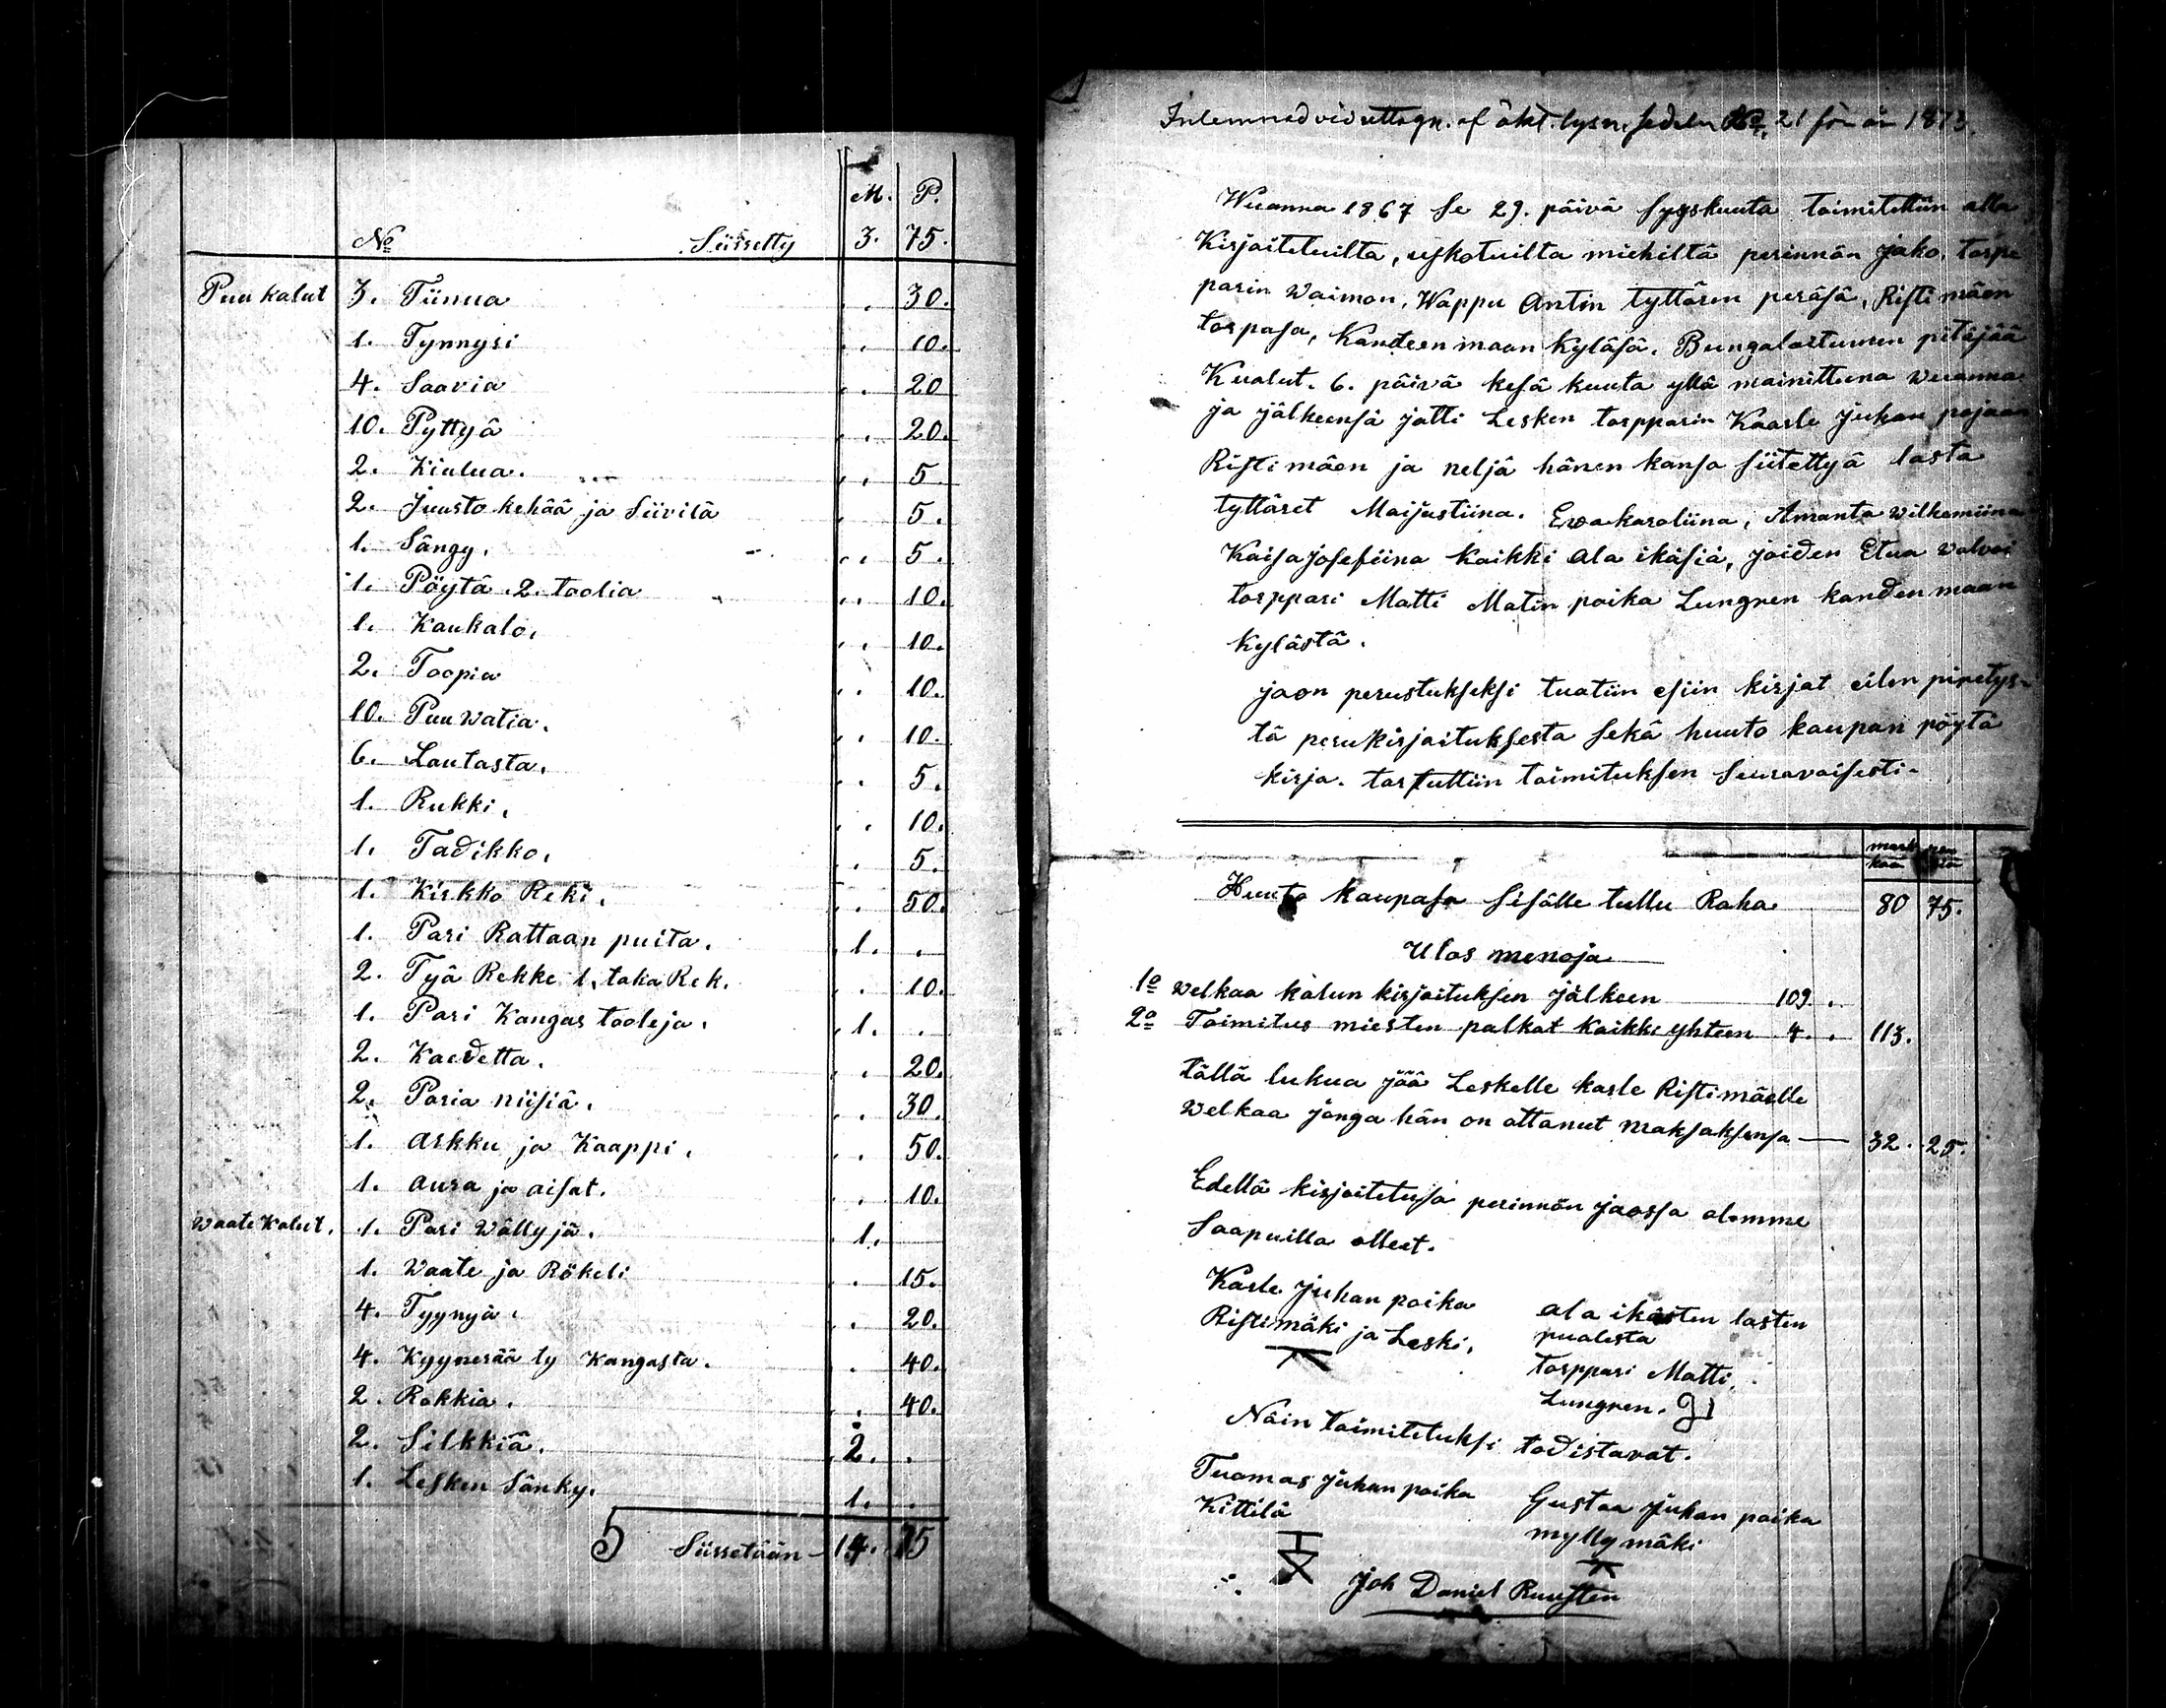 M. P.
No Siirretty 3. 75.
Puu kalut 3. Tiinua . 30.
1. Tynnyri . . 10.
4. Saavia . . 20
10. Pyttyä . . 20.
2. Kiulua. . . 5
2. Juusto kehää ja Siivilä . 5.
1. Sängy. . . 5.
1. Pöytä .2. toolia . . 10.
1. Kaukalo. . . 10.
2. Toopia . . 10.
10. Puu watia. . . 10.
6. Lautasta. . . 5.
1. Rukki. . . 10.
1. Tadikko. . . 5.
1. Kirkko Reki. . . 50.
1. Pari Rattaan puita. 1. .
2. Tyä Rekke 1. taka Rek. . 10.
1. Pari Kangas tooleja. 1. .
2. Kaedetta. . . 20.
2. Paria niisiä. . . 30.
1. arkku ja Kaappi. . . 50.
1. aura ja aisat. . 10.
Waate Kalut. 1. Pari Wällyjä. 1.
1. Waate ja Rökeli . 15.
4. Tyynyä. . 20.
4. Kyynerää ly Kangasta. . 40.
2. Rokkia. . 40.
2. Silkkiä. 2. .
1. Lesken Sänky. 1. .
5 Siirretään - 14. 75
Inlemnad vid uttagn. af äkt. lysn. sedeln No. 21 för år 1873.
Wuanna 1867 Se 29. päivä Syyskuuta toimitettiin alla
Kirjoitetuilta, uskotuilta miehiltä perinnän Jako, torpa
parin Waimon, Wappu Antin tyttären peräsä, Ristimäen
torpasa, Kandeenmaan Kyläsä. Bungalaitumen pitäjää
Kualut. 6. päivä kesä kuuta yllä mainittuna wuanna
ja jälkeensä jätti Lesken torpparin Kaarle Juhan pojaan
Ristimäen ja neljä hänen kansa siitettyä lasta
tyttäret Maijastiina. Ewakaroliina, Amanta wilhemiina
Kaisajosefiina Kaikki ala ikäsiä, joiden Etua walvoi
torppari Matti Matin poika Lungren kandenmaan
Kylästä.
jaon perustukseksi tuatiin esiin kirjat eilen piretys-
tä perukirjoituksesta sekä huuto kaupan pöytä
kirja. tartuttiin toimituksen Seuravaisesti-
mark kaa pen niä
Huuto Kaupasa Sisälle tullu Raha 80 75.
Ulos menoja
1o welkaa kalun kirjoituksen Jälkeen 109. .
2o Toimitus miesten palkat kaikki yhteen 4. . 113.
tällä lukua jää Leskelle karle Ristimäelle
welkaa jonga hän on ottanut maksaksensa — 32. 25.
Edellä kirjoitetusa perinnön jaossa olemme
Saapuilla olleet.
Karle Juhan poika
Ristimäki ja Leski,
ala ikästen lasten
pualesta
torppari Matti
Lungren.
Näin toimitetuksi todistavat.
Tuomas Juhan poika
Kittilä
Gustaa Juhan poika
myllymäki
Joh Daniel Ruusten